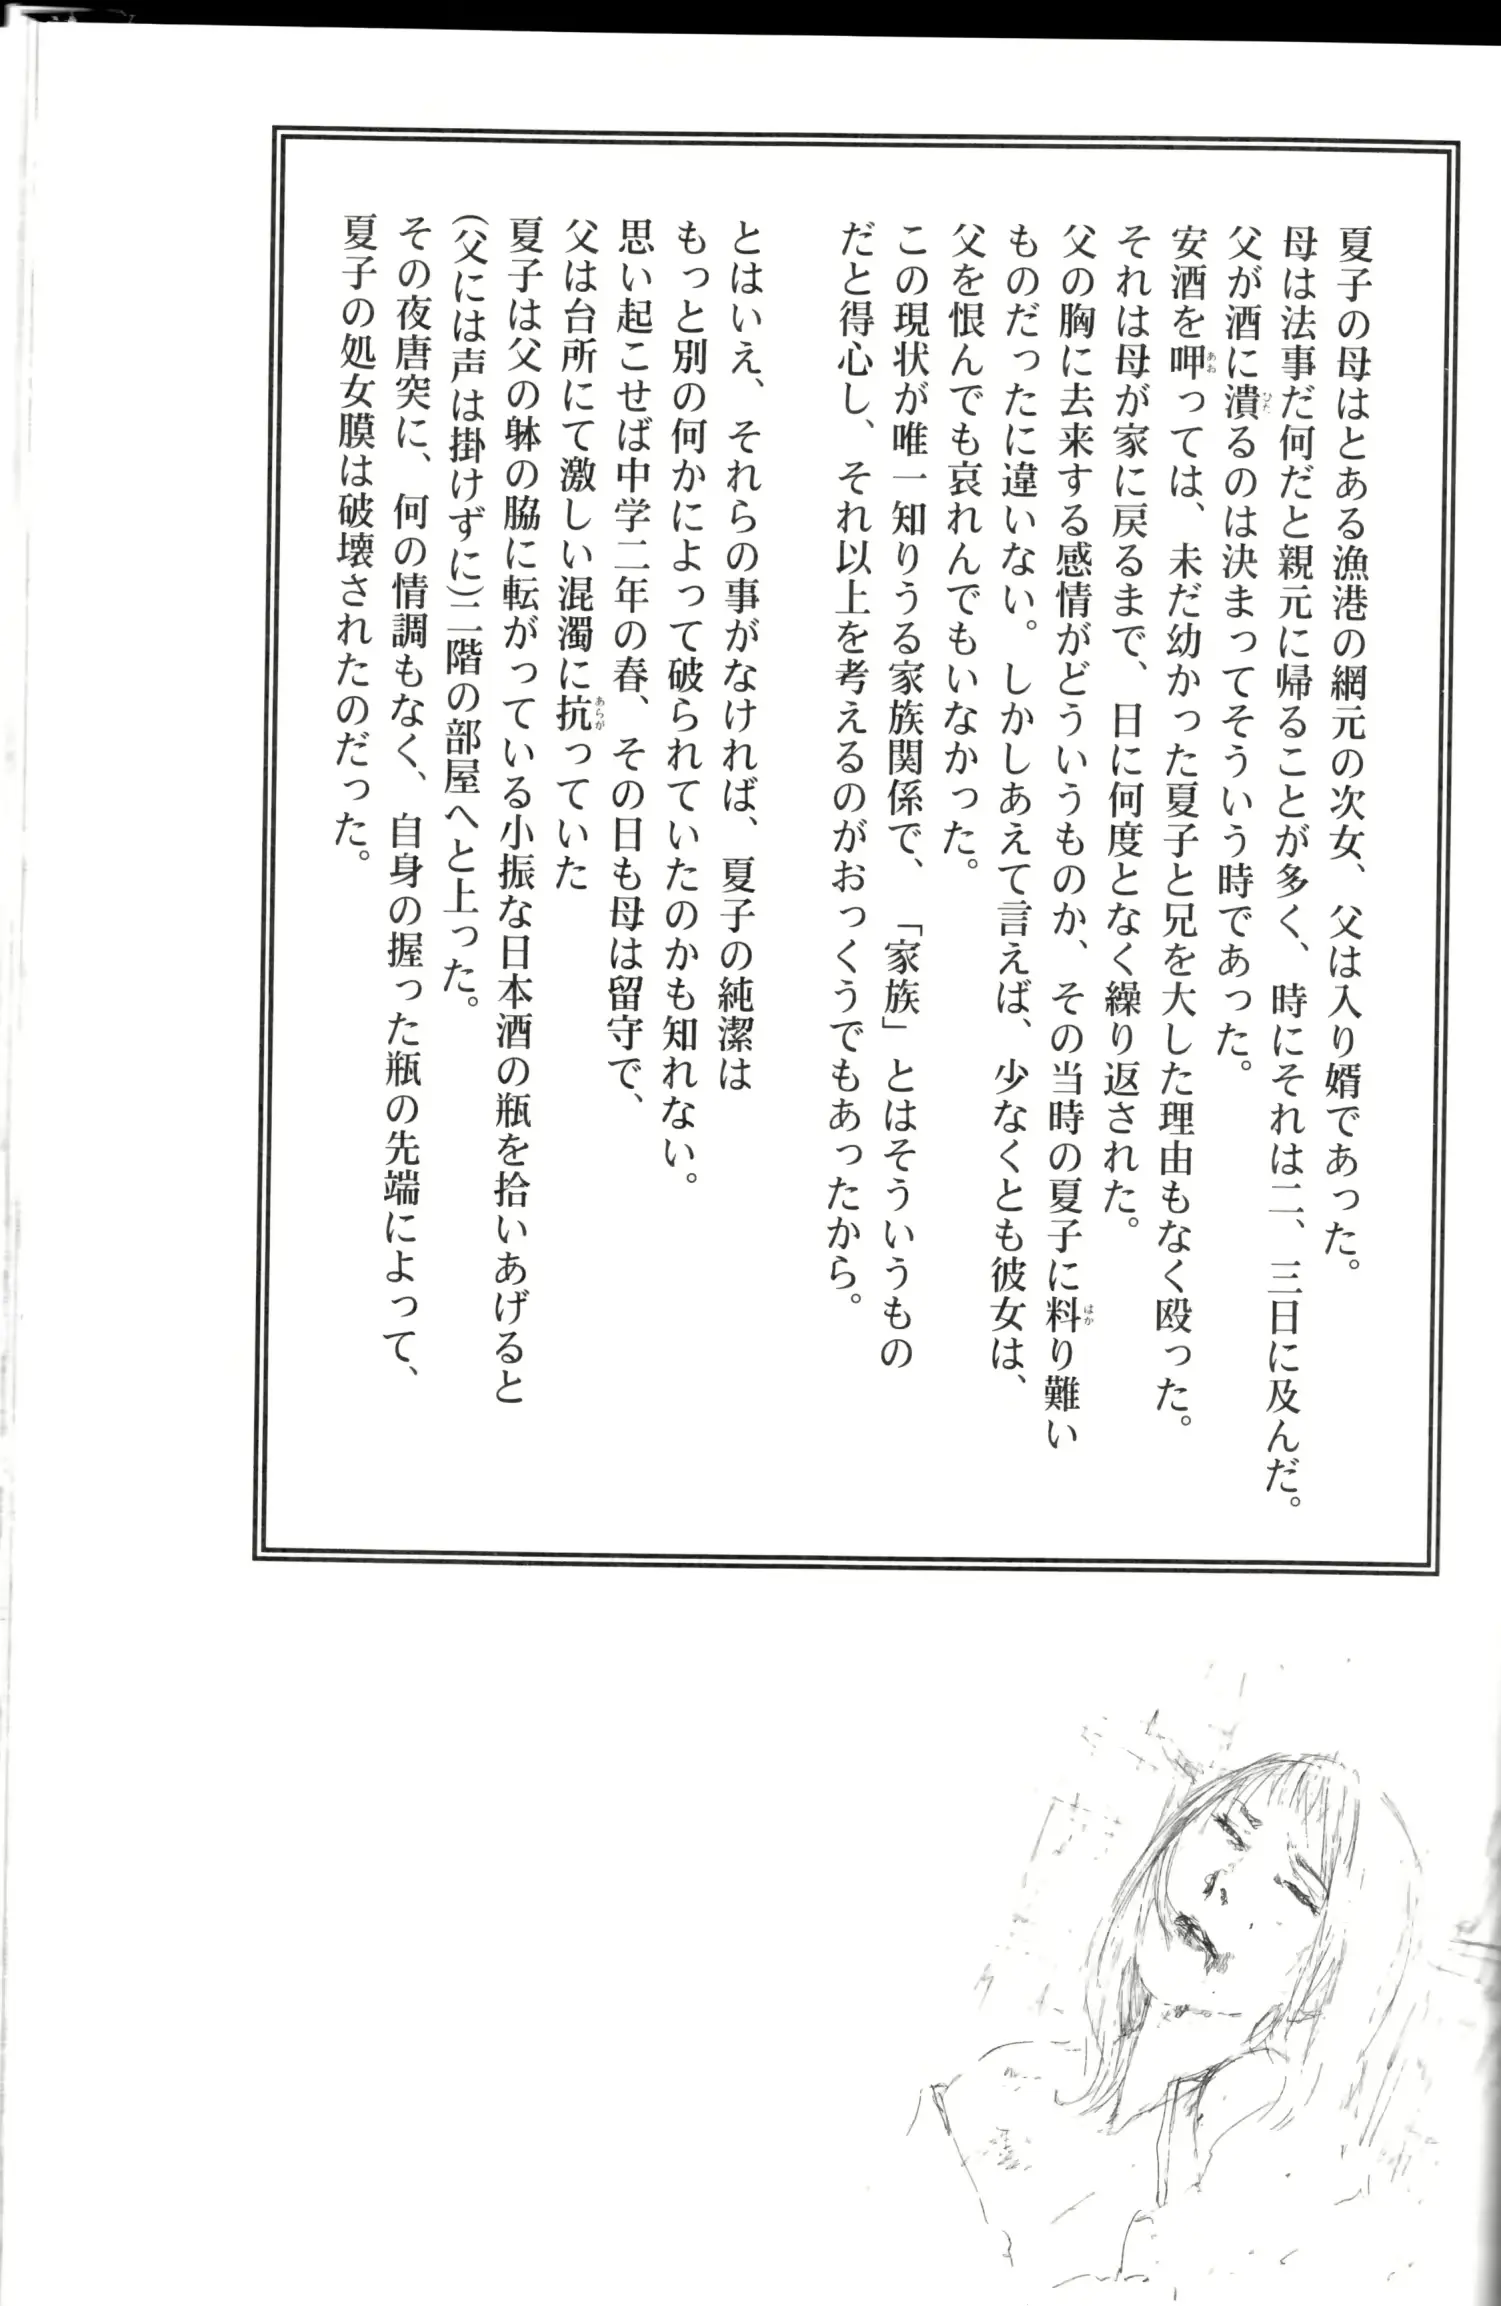 夏子の母はとある漁港の網元の次女、父は入り婿であった。
母は法事だ何だと親元に帰ることが多く、時にそれは二、三日に及んだ。
父が酒に潰るのは決まってそういう時であった。
安酒を呷っては、未だ幼かった夏子と兄を大した理由もなく殴った。
それは母が家に戻るまで、日に何度となく繰り返された。
父の胸に去来する感情がどういうものか、その当時の夏子に料り難い
ものだったに違いない。しかしあえて言えば、少なくとも彼女は、
父を恨んでも哀れんでもいなかった。
この現状が唯一知りうる家族関係で、「家族」とはそういうもの
だと得心し、それ以上を考えるのがおっくうでもあったから。
とはいえ、それらの事がなければ、夏子の純潔は
もっと別の何かによって破られていたのかも知れない。
思い起こせば中学二年の春、その日も母は留守で、
父は台所にて激しい混濁に抗っていた
夏子は父の躰の脇に転がっている小振な日本酒の瓶を拾いあげると
(父には声は掛けずに)二階の部屋へと上った。